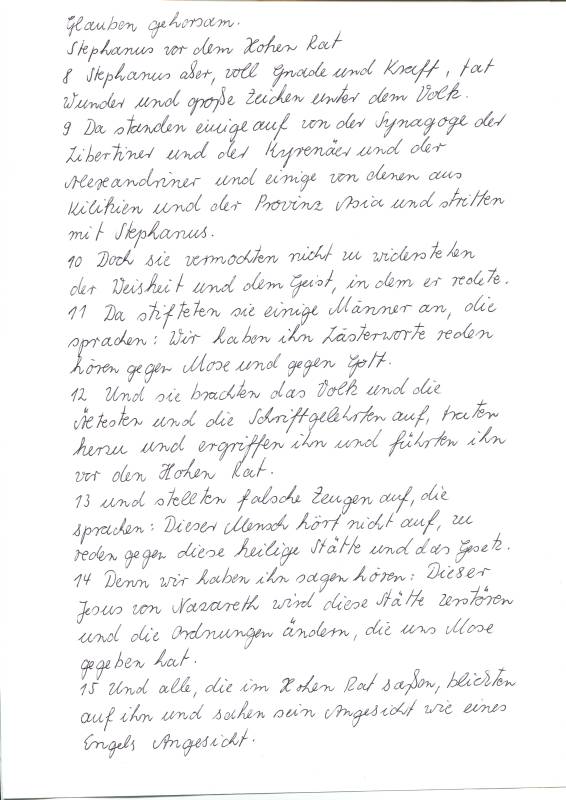 Glauben gehorsam.
Stephanus vor dem Hohen Rat
8 Stephanus aber, voll Gnade und Kraft, tat
Wunder und große Zeichen unter dem Volk.
9 Da standen einige auf von der Synagoge der
Libertiner und der Kyrenäer und der
Alexandriner und einige von denen aus
Kilikien und der Provinz Asia und stritten
mit Stephanus.
10 Doch sie vermochten nicht zu widerstehen
der Weisheit und dem Geist, in dem er redete.
11 Da stifteten sie einige Männer an, die
sprachen: Wir haben ihn Lästerworte reden
hören gegen Mose und gegen Gott.
12 Und sie brachten das Volk und die
Ältesten und die Schriftgelehrten auf, traten
herzu und ergriffen ihn und führten ihn
vor den Hohen Rat.
13 und stellten falsche Zeugen auf, die
sprachen: Dieser Mensch hört nicht auf, zu
reden gegen diese heilige Stätte und das Gesetz.
14 Denn wir haben ihn sagen hören: Dieser
Jesus von Nazareth wird diese Stätte zerstören
und die Ordnungen ändern, die uns Mose
gegeben hat.
15 Und alle, die im Hohen Rat saßen, blickten
auf ihn und sahen sein Angesicht wie eines
Engels Angesicht.